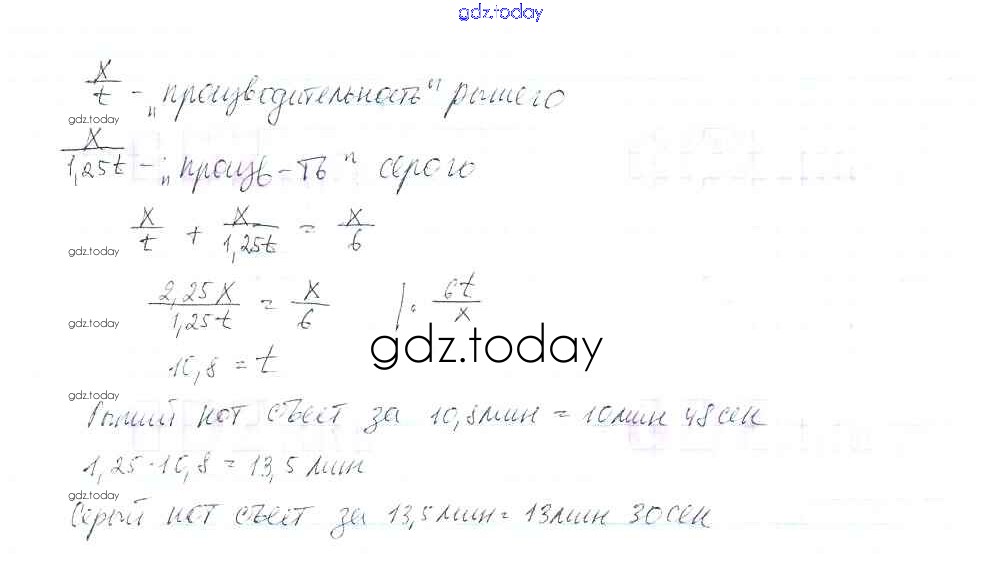 gdz.today
x/t - „производительность" рыжего
gdz.today
x/1,25t - „произв-ть" серого
x/t + x/1,25t = x/6
gdz.today
2,25x/1,25t = x/6 | · 6t/x
gdz.today
gdz.today
10,8 = t
gdz.today
Рыжий кот съест за 10,8 мин = 10 мин 48 сек
1,25·10,8 = 13,5 мин
gdz.today
Серый кот съест за 13,5 мин = 13 мин 30 сек